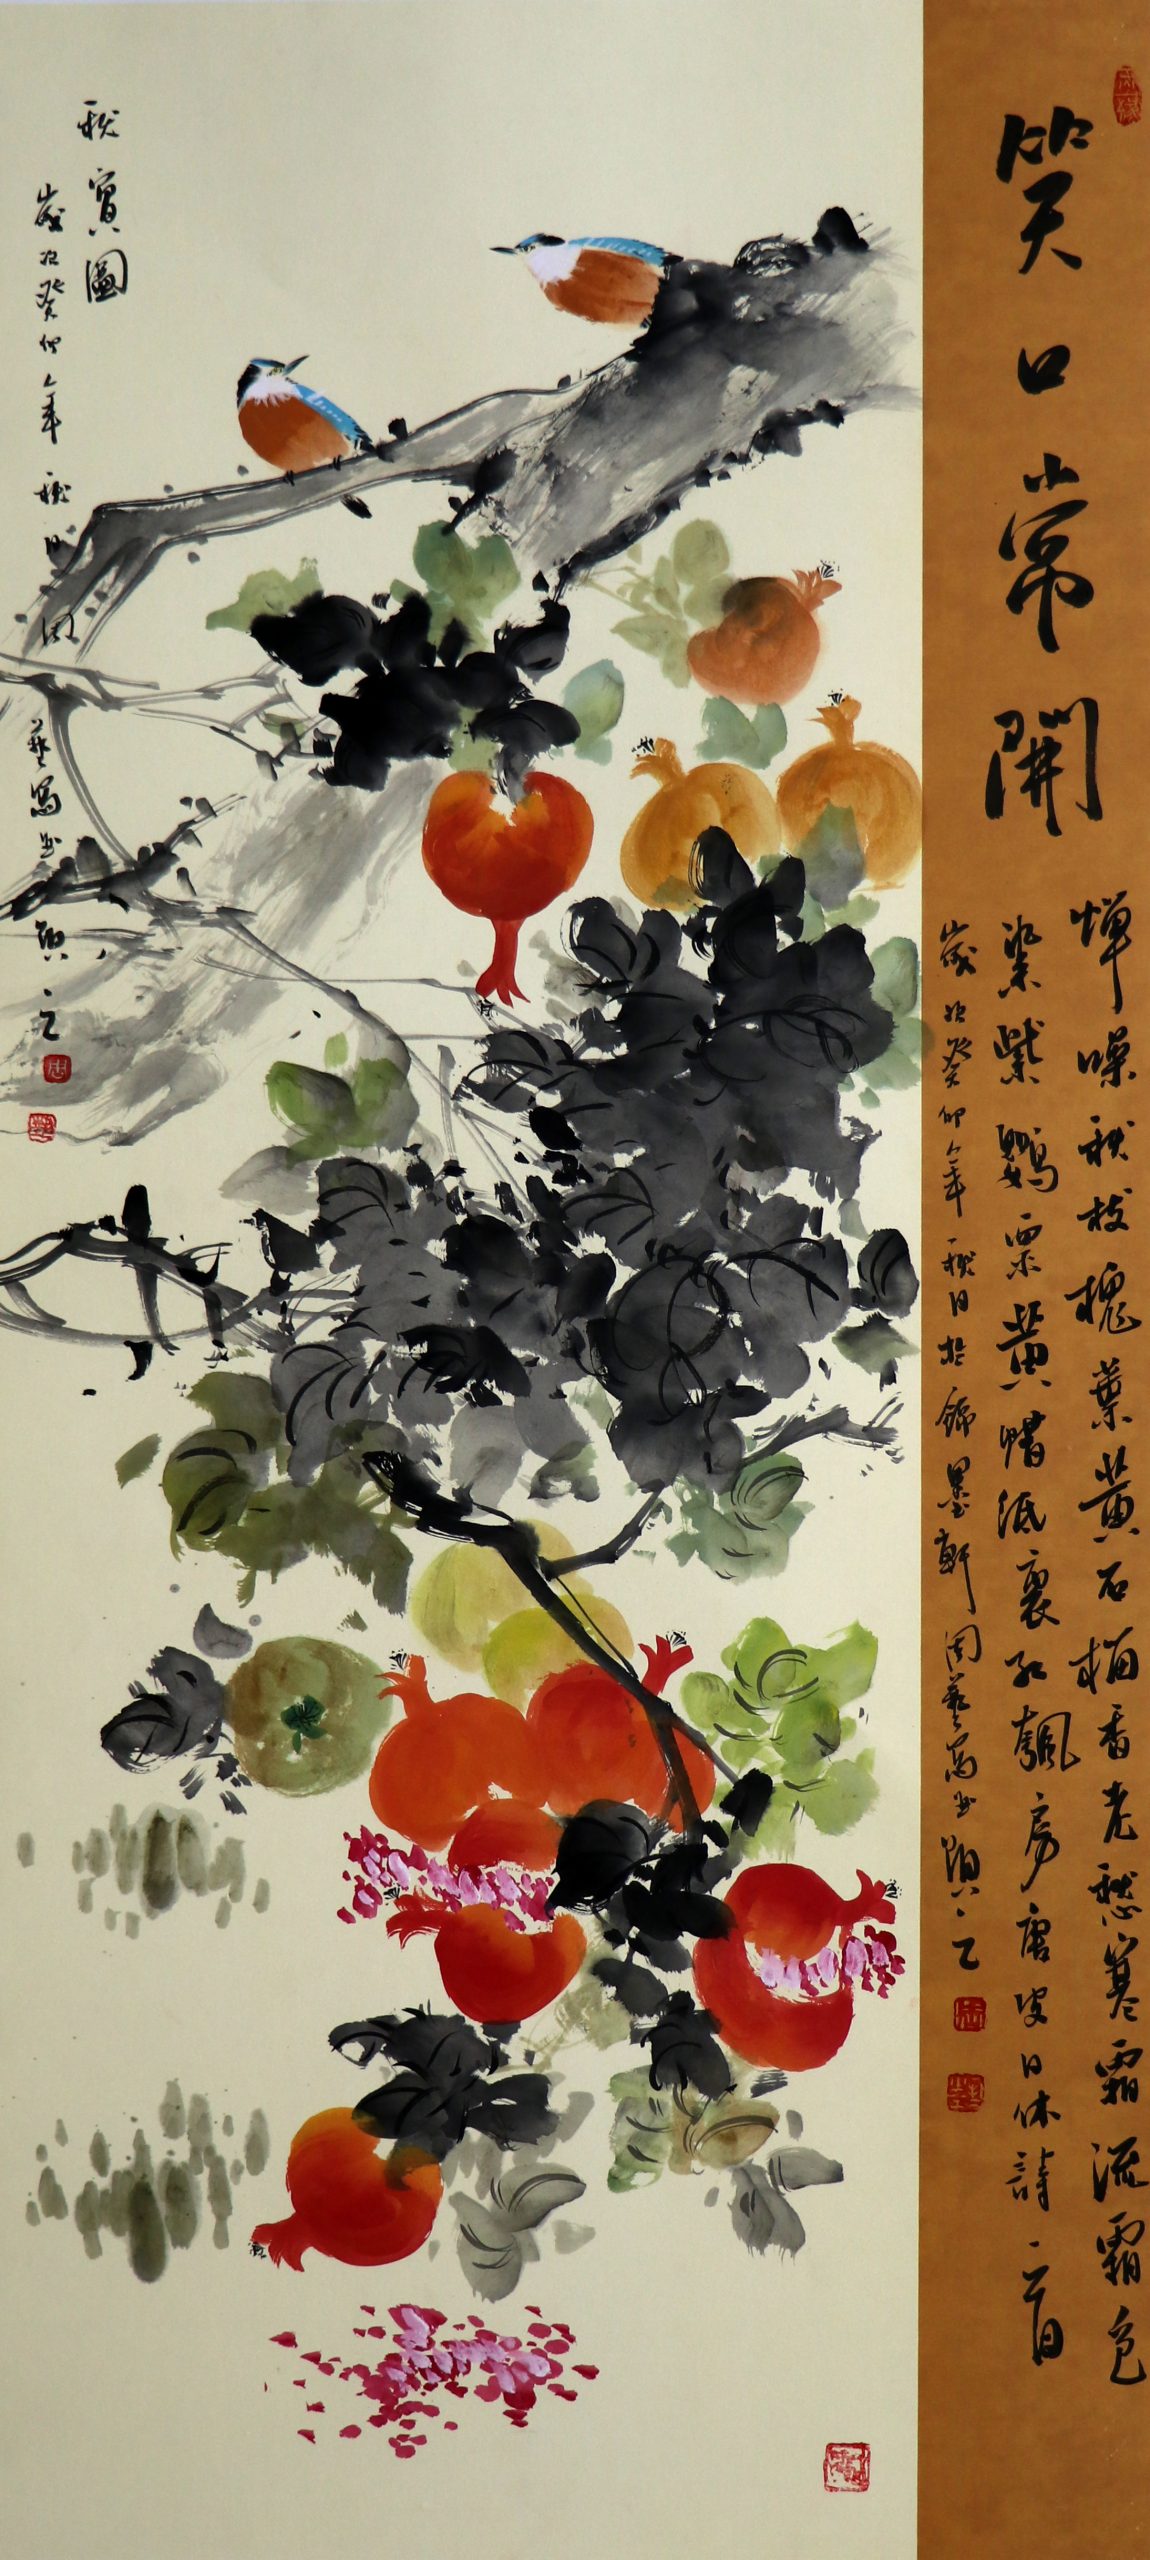 笑口常開
蟬噪秋枝槐葉黃石榴香老愁寒霜流霞色
染紫鸚粟黃蠟紙裹紅瓠房唐皮日休詩一首
歲次癸卯年秋日於錦墨軒周藝寫並題之
秋實圖
歲次癸卯年秋日周藝寫並題之